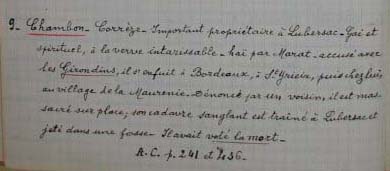 9_ Chambon_ Corrèze_ Important propriétaire à Lubersac_ Gai et
spirituel, à la verve intarissable_ haï par Marat_ accusé avec
les Girondins, il s'enfuit à Bordeaux, à St Yrieix, puis chez lui,
au village de la Maurenie_ Dénoncé par un voisin, il est mas-
sacré sur place, son cadavre sanglant est traîné à Lubersac et
jeté dans une fosse_ Il avait voté la mort_
A.C. p. 241 et 436_